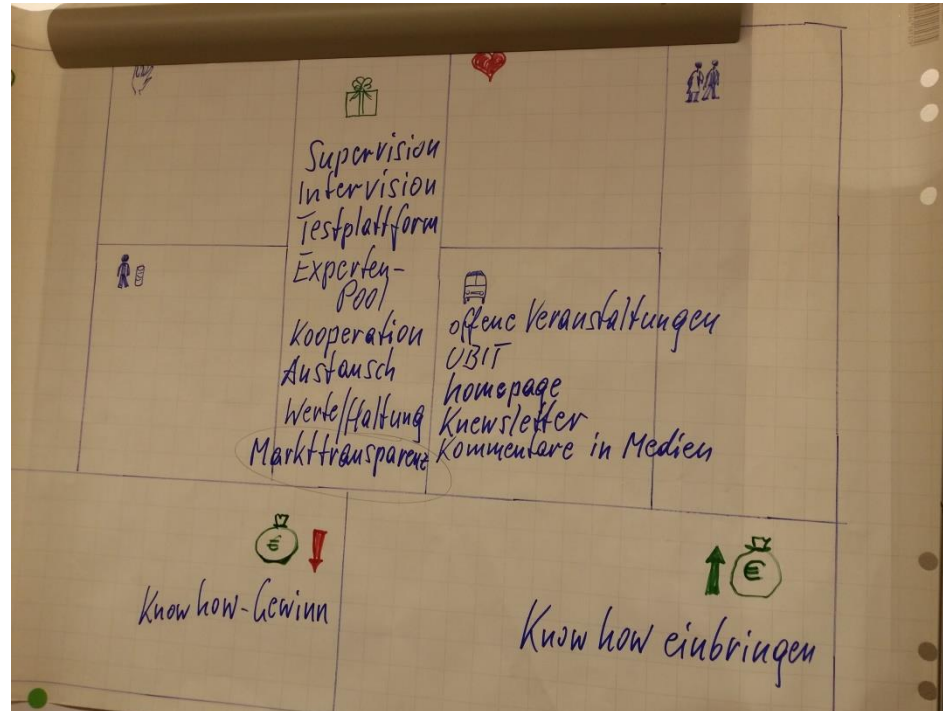 Supervision
Intervision
Testplattform
Experten-
Pool
Kooperation
Austausch
Werte/Haltung
Markttransparenz
offene Veranstaltungen
UBIT
homepage
Knewsletter
Kommentare in Medien
€
Know how-Gewinn
€
Know how einbringen